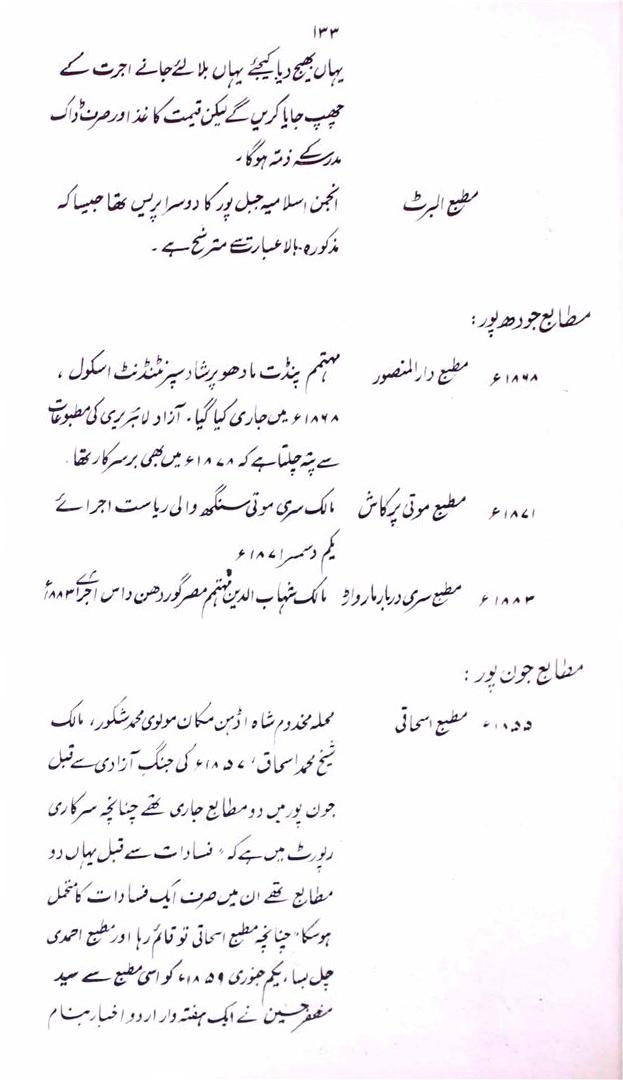 ۱۳۳
یہاں بھیج دیا کیجئے یہاں بلا لئے جانے اجرت کے
چھپ جایا کریں گے لیکن قیمت کاغذ اور صرف ڈاک
مدرسہ کے ذمہ ہوگا۔
مطبع البرٹ انجمن اسلامیہ جبل پور کا دوسرا پریس تھا جیسا کہ
مذکورہ بالا عبارت سے مترشح ہے۔
مطابع جودھ پور:
۱۸۶۸ء مطبع دارالمنصور مہتمم پنڈت مادھو پرشاد سپرنٹنڈنٹ اسکول،
۱۸۶۸ء میں جاری کیا گیا۔ آزاد لائبریری کی مطبوعات
سے پتہ چلتا ہے کہ ۱۸۷۸ء میں بھی برسرکار تھا۔
۱۸۷۱ء مطبع موتی پرکاش مالک سری موتی سنگھ والی ریاست اجرائے
یکم دسمبر ۱۸۷۱ء
۱۸۸۳ء مطبع سری دربار مارواڑ مالک شہاب الدین مہتمم مصر گوردھن داس اجرائے ۱۸۸۳ء
مطابع جون پور:
۱۸۵۵ء مطبع اسحاقی محلہ مخدوم شاہ اڈہن مکان مولوی محمد شکور، مالک
شیخ محمد اسحاق، ۱۸۵۷ء کی جنگ آزادی سے قبل
جون پور میں دو مطابع جاری تھے چنانچہ سرکاری
رپورٹ میں ہے کہ "فسادات سے قبل یہاں دو
مطابع تھے ان میں صرف ایک فسادات کا متحمل
ہوسکا" چنانچہ مطبع اسحاقی تو قائم رہا اور مطبع احمدی
چل بسا، یکم جنوری ۱۸۵۹ء کو اسی مطبع سے سید
مظفر حسین نے ایک ہفتہ وار اردو اخبار بنام